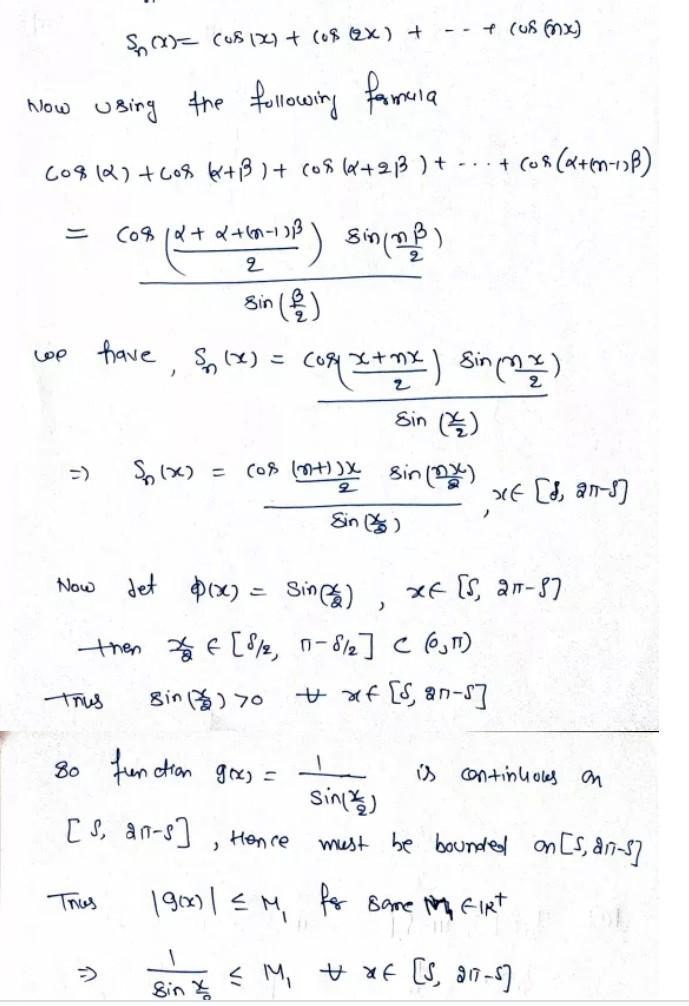 Sₙ(x) = cos(x) + cos(2x) + --- + cos(nx)
Now using the following formula
cos(α) + cos(α+β) + cos(α+2β) + ... + cos(α+(n-1)β)
= cos((α + α+(n-1)β)/2) sin(nβ/2) / sin(β/2)
we have, Sₙ(x) = cos((x+nx)/2) sin(nx/2) / sin(x/2)
=) Sₙ(x) = cos (n+1)x/2 sin(nx/2) / sin(x/2) , x∈ [δ, 2π-δ]
Now let φ(x) = sin(x/2) , x∈ [δ, 2π-δ]
then x/2 ∈ [δ/2, π-δ/2] ⊂ (0,π)
Thus sin(x/2) >0 ∀ x∈ [δ, 2π-δ]
So function g(x) = 1/sin(x/2) is continuous on
[δ, 2π-δ] , Hence must be bounded on [δ, 2π-δ]
Thus |g(x)| ≤ M₁ for some M₁ ∈ IR⁺
⇒ 1/sin x/2 ≤ M₁ ∀ x∈ [δ, 2π-δ]